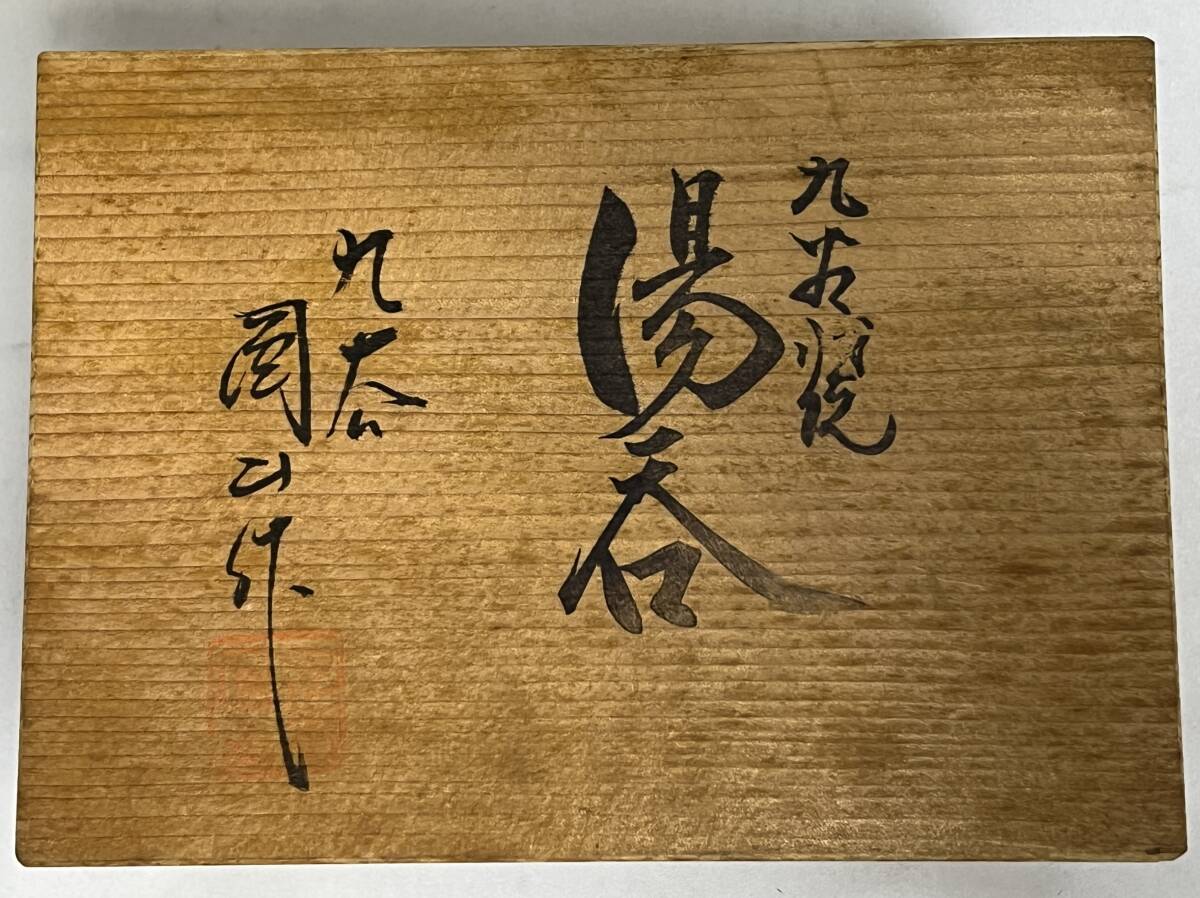 九谷焼
湯呑
九谷
山作